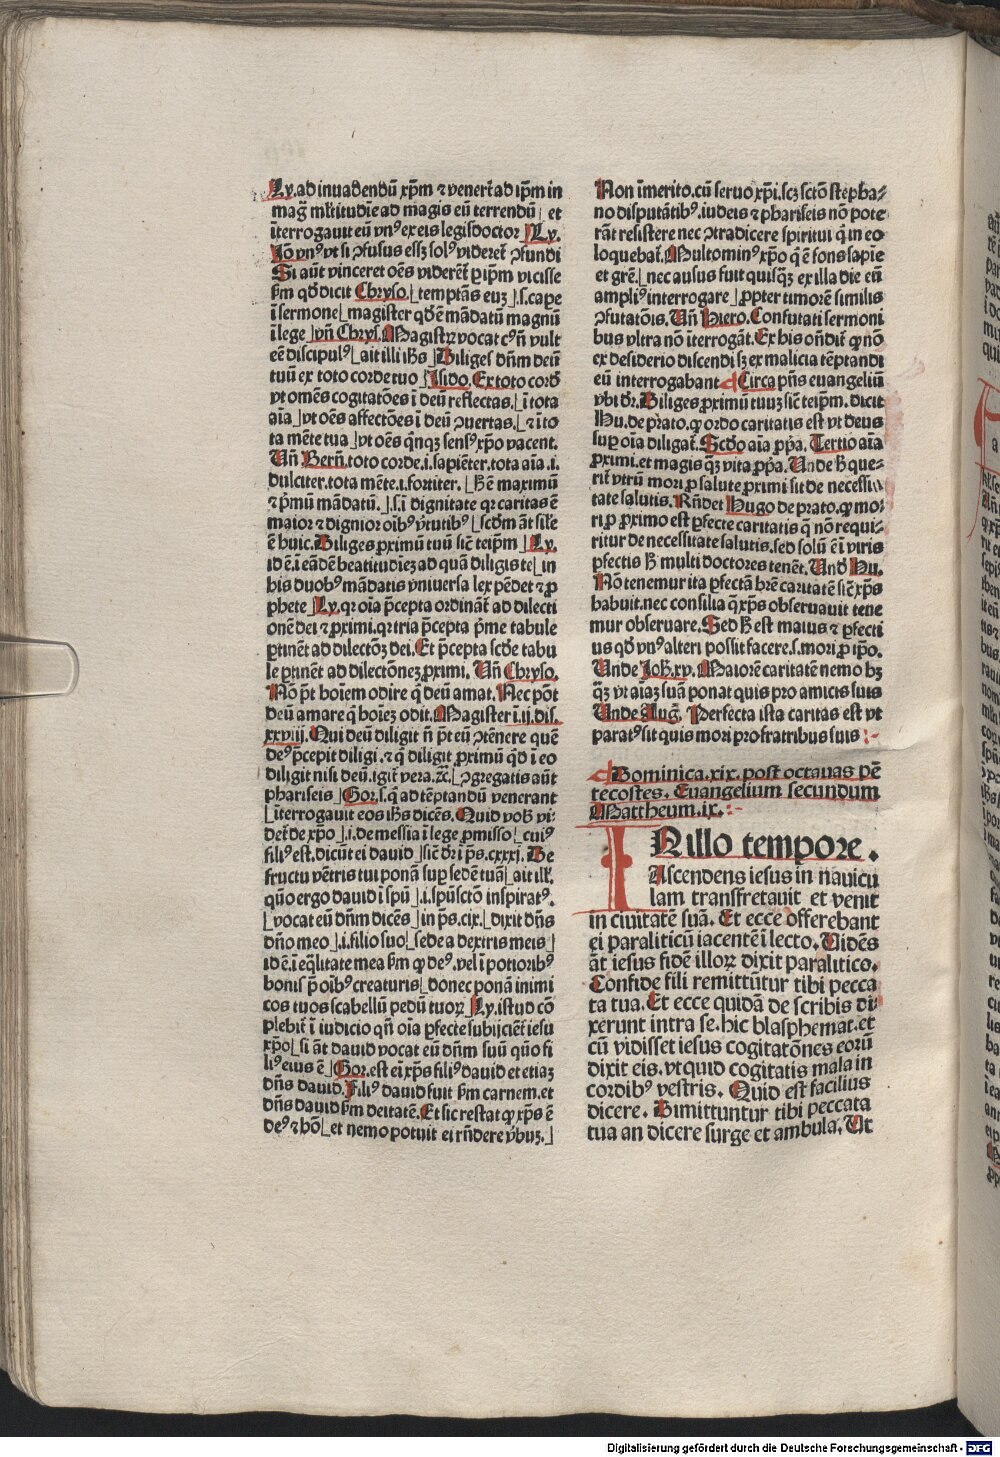 Ly. ad inuadendū xp̄m ⁊ venerūt ad ip̄m in
mag̃ ml̓titudīe ad magis eū terrendū ⁊ et
īterrogauit eū vnꝰ ex eis legisdoctor Ly.
Jō vnꝰ vt si ꝯfusus esset solꝰ videret̉ ꝯfundi
Si aūt vinceret oēs viderēt̉ ꝑ ip̄m vicisse
ẜm qđ dicit Chryso. temptās euꝫ .s. cape
ī sermone magister qđ ē mādatū magnū
ī lege vn̄ Chrys. Magistꝝ vocat cꝰ n̄ vult
eē discipulꝰ ait illi ih̄s Diliges dn̄m deū
tuū ex toto corde tuo Isido. Ex toto corđ
vt omēs cogitatōes ī deū reflectas. ī tota
aīa vt oēs affectōes ī deū ꝯuertas. ⁊ ī to
ta mēte tua vt oēs qn̄qꝫ sensꝰ xp̄o vacent.
Vn̄ Bern̄. toto corde .i. sapiēter. tota aīa .i.
dulciter. tota mēte .i. fortiter. H̄ ē maximū
⁊ p̄mū mādatū. .s. ī dignitate qꝛ caritas ē
maior ⁊ dignior oībꝰ v̓tutibꝰ scđm āt sil̓e
ē huic. Diliges ꝓximū tuū sic̄ teip̄m Ly.
id ē. ī eādē beatitudīeꝫ ad quā diligis te in
his duobꝰ mādatis vniuersa lex pēdet ⁊ ꝓ
phete Ly. qꝛ oīa p̄cepta ordināt̉ ad dilecti
onē dei ⁊ ꝓximi. qꝛ tria p̄cepta p̄me tabule
ꝑtinēt ad dilectōꝫ dei. Et p̄cepta scđe tabu
le ꝑtinēt ad dilectōneꝫ ꝓximi. Vn̄ Chryso.
Nō p̄t hoīem odire q̄ deū amat. Nec pōt
deū amare q̄ hoīeꝫ odit. Magister ī .iij. dis.
xxviij. Qui deū diligit n̄ p̄t eū ꝯtēnere quē
deꝰ p̄cepit diligi. ⁊ q̄ diligit ꝓximū qđ ī eo
diligit nisi deū. igit̉ vera. ⁊c̄. ꝯgregatis aūt
phariseis Gor. s. q̄ ad tēptandū venerant
īterrogauit eos ih̄s dicēs. Quid vob̄ vi-
det̉ de xp̄o .i. de messia ī lege ꝓmisso cuiꝰ
filiꝰ est. dicūt ei dauid sic̄ dr̄ ī ps̄. cxxxj. De
fructu vētris tui ponā suꝑ sedē tuā ait ill̓.
quō ergo dauid ī spū .i. spūsctō inspiratꝰ.
vocat eū dn̄m dicēs in ps̄. cix. dixit dn̄s
dn̄o meo .i. filio suo sede a dextris meis
id ē. ī eq̄litate mea ẜm ꝙ deꝰ. vel ī potioribꝰ
bonis p̄ oībꝰ creaturis donec ponā inimi
cos tuos scabellū pedū tuoꝝ Ly. istud cō
plebit̉ ī iudicio qn̄ oīa ꝑfecte subijciēt̉ iesu
xp̄o si āt dauid vocat eū dn̄m suū quō fi
liꝰ eius ē Gor. est ei xp̄s filiꝰ dauid et etiaꝫ
dn̄s dauid. Filiꝰ dauid fuit ẜm carnem. et
dn̄s dauid ẜm deitatē. Et sic restat ꝙ xp̄s ē
deꝰ ⁊ hō et nemo potuit ei rn̄dere v̓buꝫ.
Non īmerito. cū seruo xp̄i. scꝫ sctō stepha-
no disputātibꝰ. iudeis ⁊ phariseis nō pote
rāt resistere nec ꝯtradicere spiritui q̄ in eo
loquebat̉. Multominꝰ xp̄o q̄ ē fons sapīe
et gr̄e. nec ausus fuit quisqꝫ ex illa die eū
ampliꝰ interrogare ꝓpter timorē similis
ꝯfutatōis. Vn̄ Hiero. Confutati sermoni
bus vltra nō īterrogāt. Ex his on̄dit̉ ꝙ nō
ex desiderio discendi sꝫ ex malicia tēptandi
eū interrogabant Circa pn̄s euangeliū
vbi dr̄. Diliges ꝓximū tuuꝫ sic̄ teip̄m. dicit
Hu. de prato. ꝙ ordo caritatis est vt deus
suꝑ oīa diligat̉. Scđo aīa ꝓpa. Tertio aīa
ꝓximi. et magis qꝫ vita ꝓpa. Unde h̄ que-
rit̉ vtrū mori ꝓ salute ꝓximi sit de necessi
tate salutis. Rn̄det Hugo de prato. ꝙ mo-
ri ꝓ ꝓximo est ꝑfecte caritatis q̄ nō requi-
ritur de necessitate salutis. sed solū ē ī viris
ꝑfectis h̄ multi doctores tenēt. Vnđ Hu.
Nō tenemur ita ꝑfectā hr̄e caritatē sic̄ xp̄s
habuit. nec consilia q̄ xp̄s obseruauit tene
mur obseruare. Sed h̄ est maius ⁊ ꝑfecti
us qđ vnꝰ alteri possit facere. s. mori ꝓ ip̄o.
Unde Joh̄. xv. Maiorē caritatē nemo hꝫ
qꝫ vt aīaꝫ suā ponat quis pro amicis suis
Unde Aug̃. Perfecta ista caritas est vt
paratꝰ sit quis mori pro fratribus suis :-
Dominica .xix. post octauas pē
tecostes. Euangelium secundum
Mattheum. ix. :-
IN illo tempore.
Ascendens iesus in nauicu
lam transfretauit et venit
in ciuitatē suā. Et ecce offerebant
ei paraliticū iacentē ī lecto. Uidēs
āt iesus fidē illoꝝ dixit paralitico.
Confide fili remittūtur tibi pecca
ta tua. Et ecce quidā de scribis di
xerunt intra se. hic blasphemat. et
cū vidisset iesus cogitatōnes eorū
dixit eis. vt quid cogitatis mala in
cordibꝰ vestris. Quid est facilius
dicere. Dimittuntur tibi peccata
tua an dicere surge et ambula. Ut
Digitalisierung gefördert durch die Deutsche Forschungsgemeinschaft - DFG